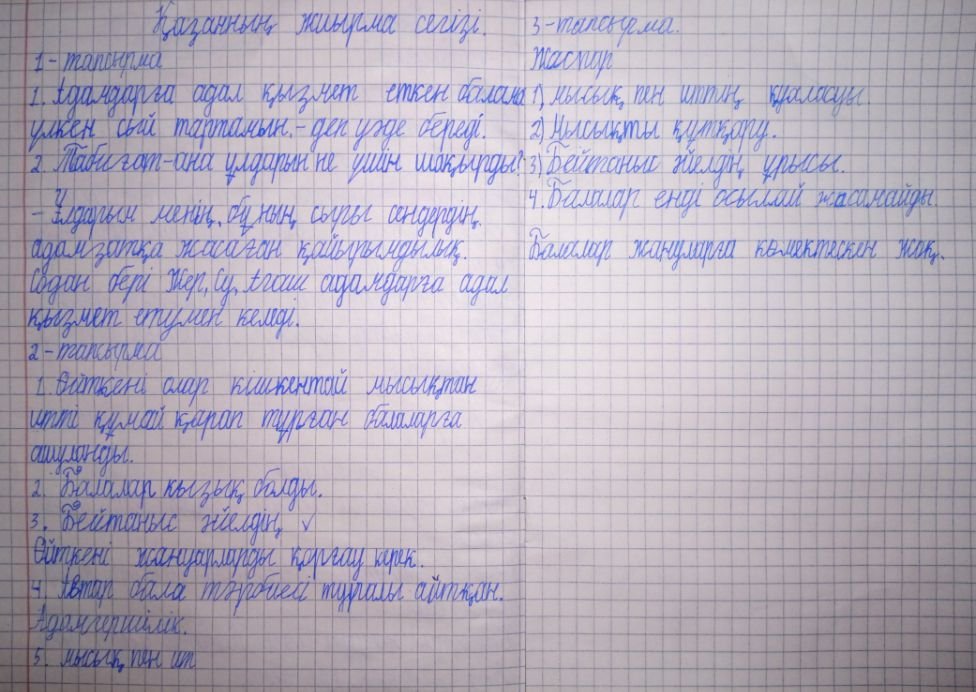 Қазанның жиырма сегізі.
1-тапсырма
1. Адамдарға адал қызмет еткен балама
үлкен сый тартамын.-деп уәде береді.
2. Табиғат-ана ұлдарын не үшін шақырды?
- Ұлдарым менің, бұ ның сыры сендердің
адамзатқа жасаған қайырымдылық.
Содан бері Жер, Су, Ағаш адамдарға адал
қызмет етумен келеді.
2-тапсырма
1. Өйткені олар кішкентай мысықтан
итті құмай қарап тұрған балаларға
ашуланды.
2. Балалар қызық болды.
3. Бейтаныс әйелдің ✓
Өйткені жануарларды қорғау керек.
4. Автар бала тәрбиесі туралы айтқан.
Адамгершілік.
5. мысық пен ит
3-тапсырма.
Жаспар
1) мысық пен иттің қуаласуы.
2) Мысықты құтқару.
3) Бейтаныс әйелдің ұрысы.
4. Балалар енді осылай жасамайды.
Балалар жануларға көмектескен жоқ.